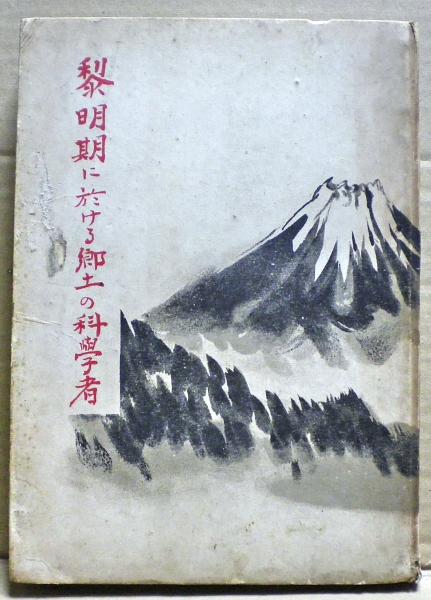 黎明期に於ける郷土の科學者